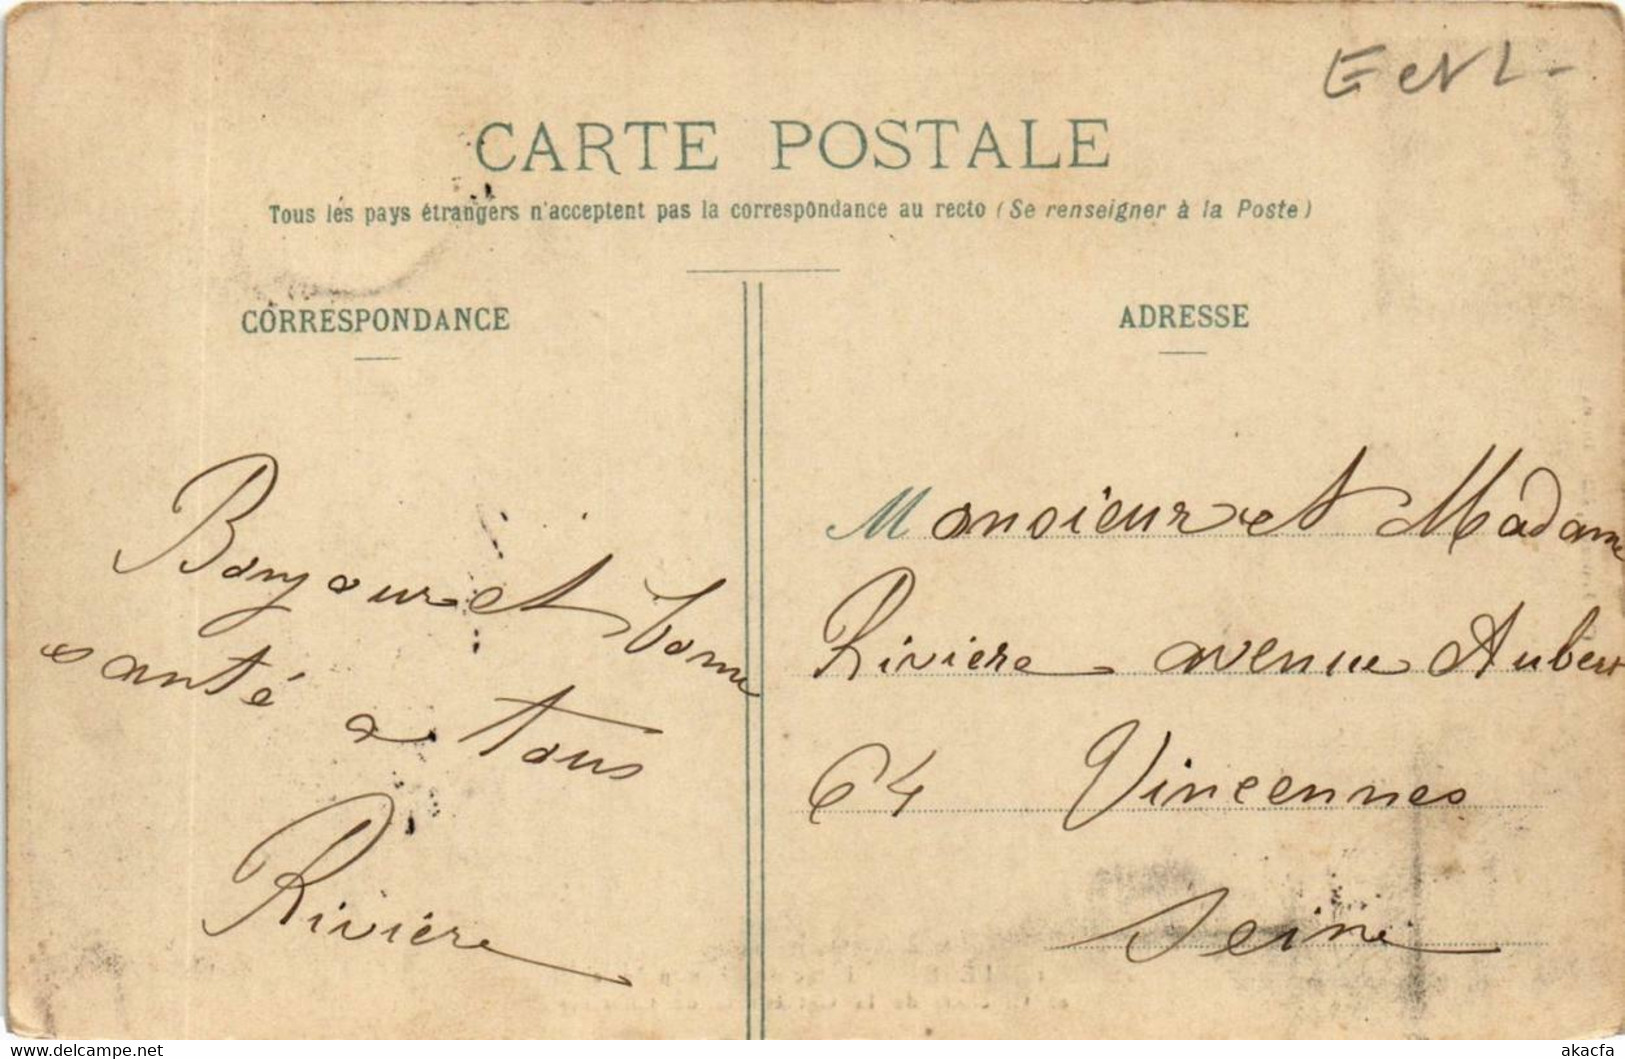 CARTE POSTALE
Tous les pays étrangers n'acceptent pas la correspondance au recto (Se renseigner à la Poste)
CORRESPONDANCE
Bonjour et bonne
santé a tous
Rivière
ADRESSE
Monsieur et Madame
Riviere avenue Aubert
64 Vincennes
Seine
www.delcampe.net
akacfa